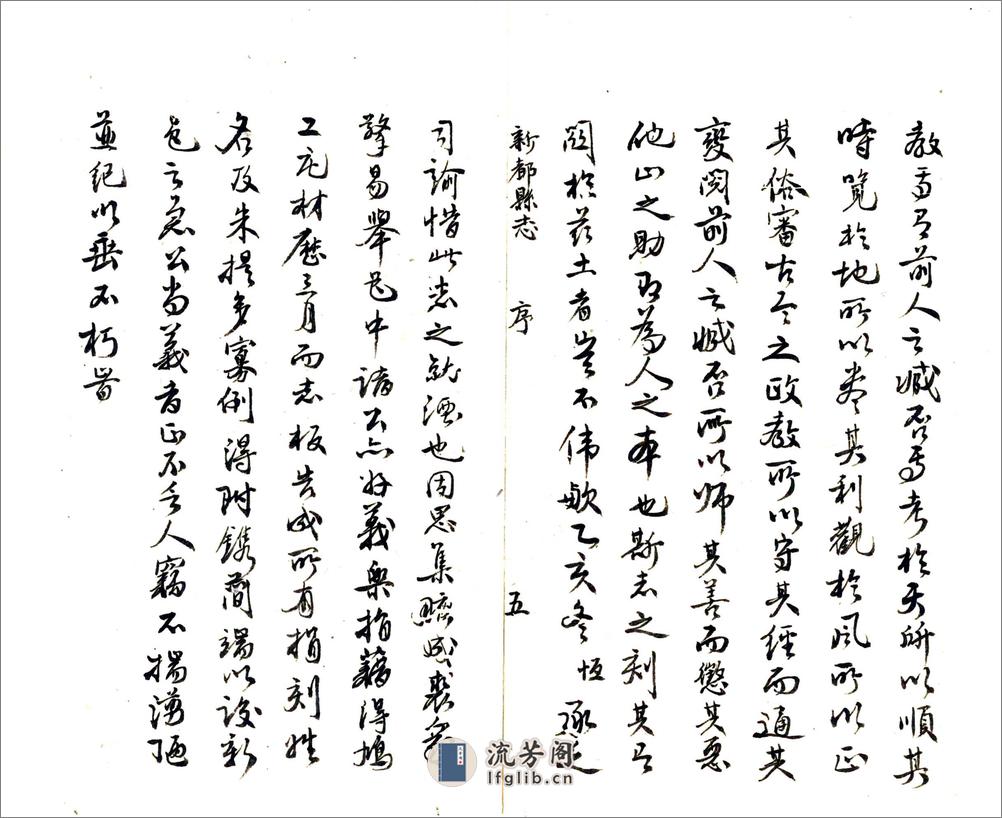 教焉有前人之臧否焉考於天所以順其
時覽於地所以盡其利觀於風所以正
其俗審古今之政教所以守其經而通其
變閱前人之臧否所以師其善而懲其惡
他山之助取為人之本也斯志之刻其有
關於茲土者豈不偉歟乙亥冬恒承乏
新都縣志 序 五
司諭惜此志之就湮也因思集腋成裘眾
擎易舉邑中諸公亦好義樂捐藉得鳩
工庀材歷三月而志板告成所有捐刻姓
名及朱提多寡例得附鐫簡端以詄新
邑之急公尚義者正不乏人竊不揣謭陋
並紀以垂不朽耑
流芳阁
lfglib.cn